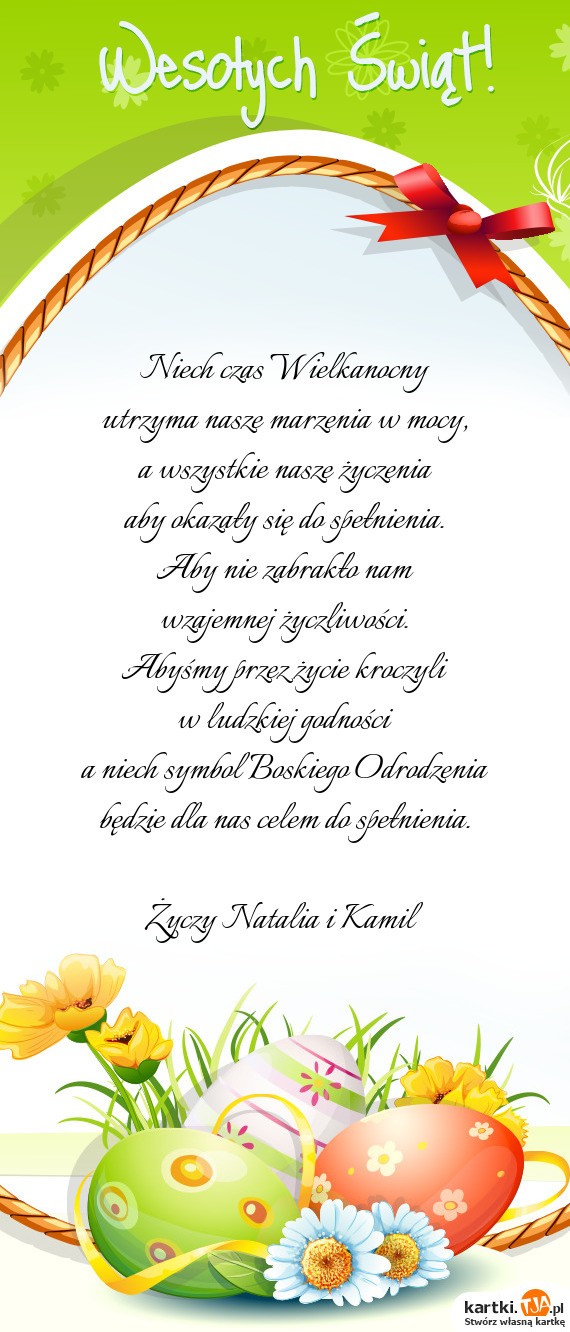 Wesołych Świąt!
Niech czas Wielkanocny
utrzyma nasze marzenia w mocy,
a wszystkie nasze życzenia
aby okazały się do spełnienia.
Aby nie zabrakło nam
wzajemnej życzliwości.
Abyśmy przez życie kroczyli
w ludzkiej godności
a niech symbol Boskiego Odrodzenia
będzie dla nas celem do spełnienia.
Życzy Natalia i Kamil
kartki.TJA.pl
Stwórz własną kartkę